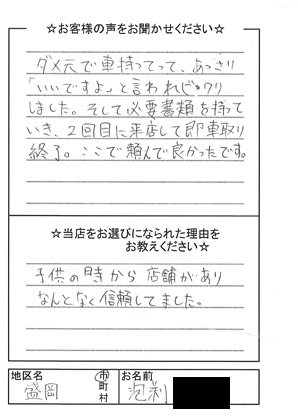 ☆お客様の声をお聞かせください☆
ダメ元で車持ってって、あっさり
「いいですよ」と言われビックリ
しました。そして必要書類を持って
いき、2回目に来店して即車取り
終了。ここで頼んで良かったです。
☆当店をお選びになられた理由を
お教えください☆
子供の時から店舗があり
なんとなく信頼してました。
地区名 盛岡 市町村 お名前